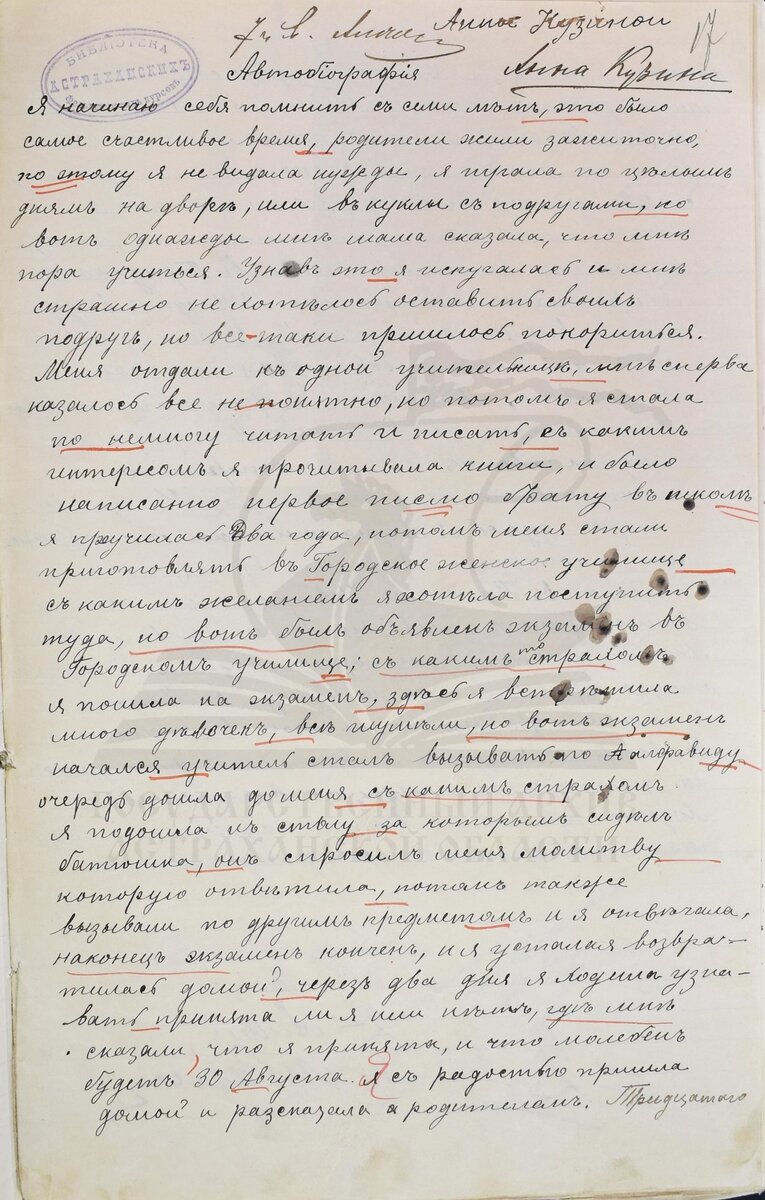 Анны Кузиной
17
Анна Кузина
БИБЛІОТЕКА
АСТРАХАНСКИХЪ
Автобіографія
Я начинаю себя помнить съ семи лѣтъ, это было
самое счастливое время, родители жили зажиточно,
по этому я не видала нужды, я играла по цѣлымъ
днямъ на дворѣ, или въ куклы съ подругами, но
вотъ однажды мнѣ мама сказала, что мнѣ
пора учиться. Узнавъ это я испугалась и мнѣ
страшно не хотѣлось оставить своихъ
подругъ, но все-таки пришлось покориться.
Меня отдали къ одной учительницѣ, мнѣ сперва
казалось все не понятно, но потомъ я стала
по немногу читать и писать, съ какимъ
интересомъ я прочитывала книги, и было
написанно первое писмо брату въ школѣ
я проучилась два года, потомъ меня стали
приготовлять въ Городское женское училище
съ какимъ желаніемъ я хотѣла поступить
туда, но вотъ былъ объявленъ экзаменъ въ
Городскомъ училище; съ какимъ то страхомъ
я пошла на экзаменъ, здѣсь я встрѣтила
много дѣвочекъ, всѣ шумѣли, но вотъ экзаменъ
начался учитель сталъ вызывать по Алфавиду
очередь дошла до меня съ какимъ страхомъ
я подошла къ столу за которымъ сидѣлъ
батюшка, онъ спросилъ меня молитву
которую отвѣтила, потомъ также
вызывали по другимъ предметомъ и я отвѣчала,
наконецъ экзаменъ конченъ, и я усталая возвра-
тилась домой, черезъ два дня я ходила узна-
вать принята ли я или нѣтъ, гдѣ мнѣ
сказали, что я принята, и что молебенъ
будетъ 30 Августа. Я съ радостью пришла
домой и разсказала а родителямъ. Тридцатаго